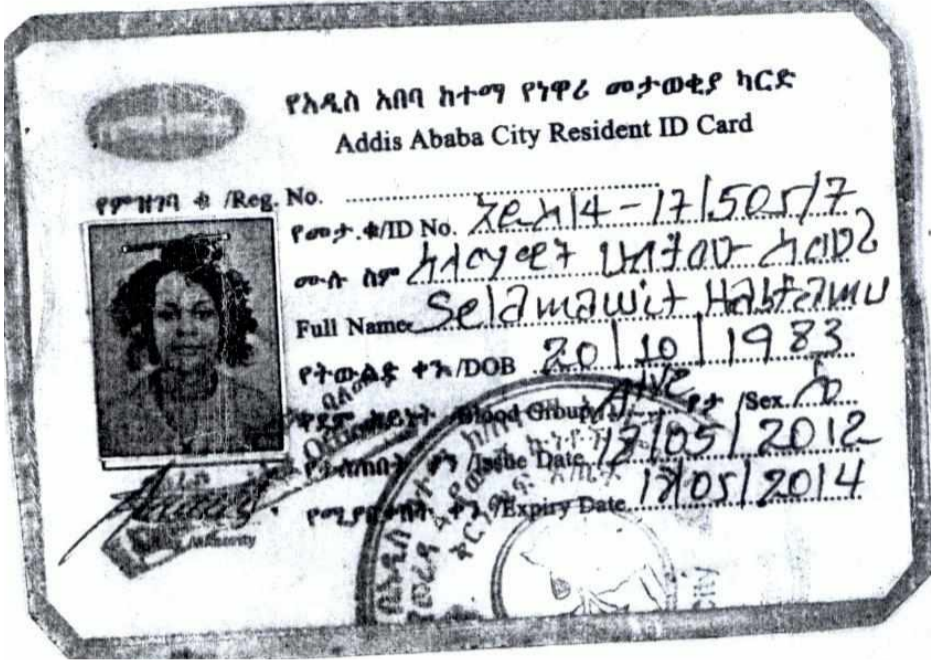 የአዲስ አበባ ከተማ የነዋሪ መታወቂያ ካርድ
Addis Ababa City Resident ID Card
የምዝገባ ቁ /Reg. No.
የመታ.ቁ/ID No. 4-17/505/7
ሙሉ ስም ሰላማዊት ሀብታሙ
Full Name Selamawit Habtamu
የትውልድ ቀን/DOB 20/10/1983
የደም ዓይነት /Blood Group /Sex
የተሰጠበት ቀን /Issue Date /05/2012
የሚያበቃበት ቀን /Expiry Date /05/2014